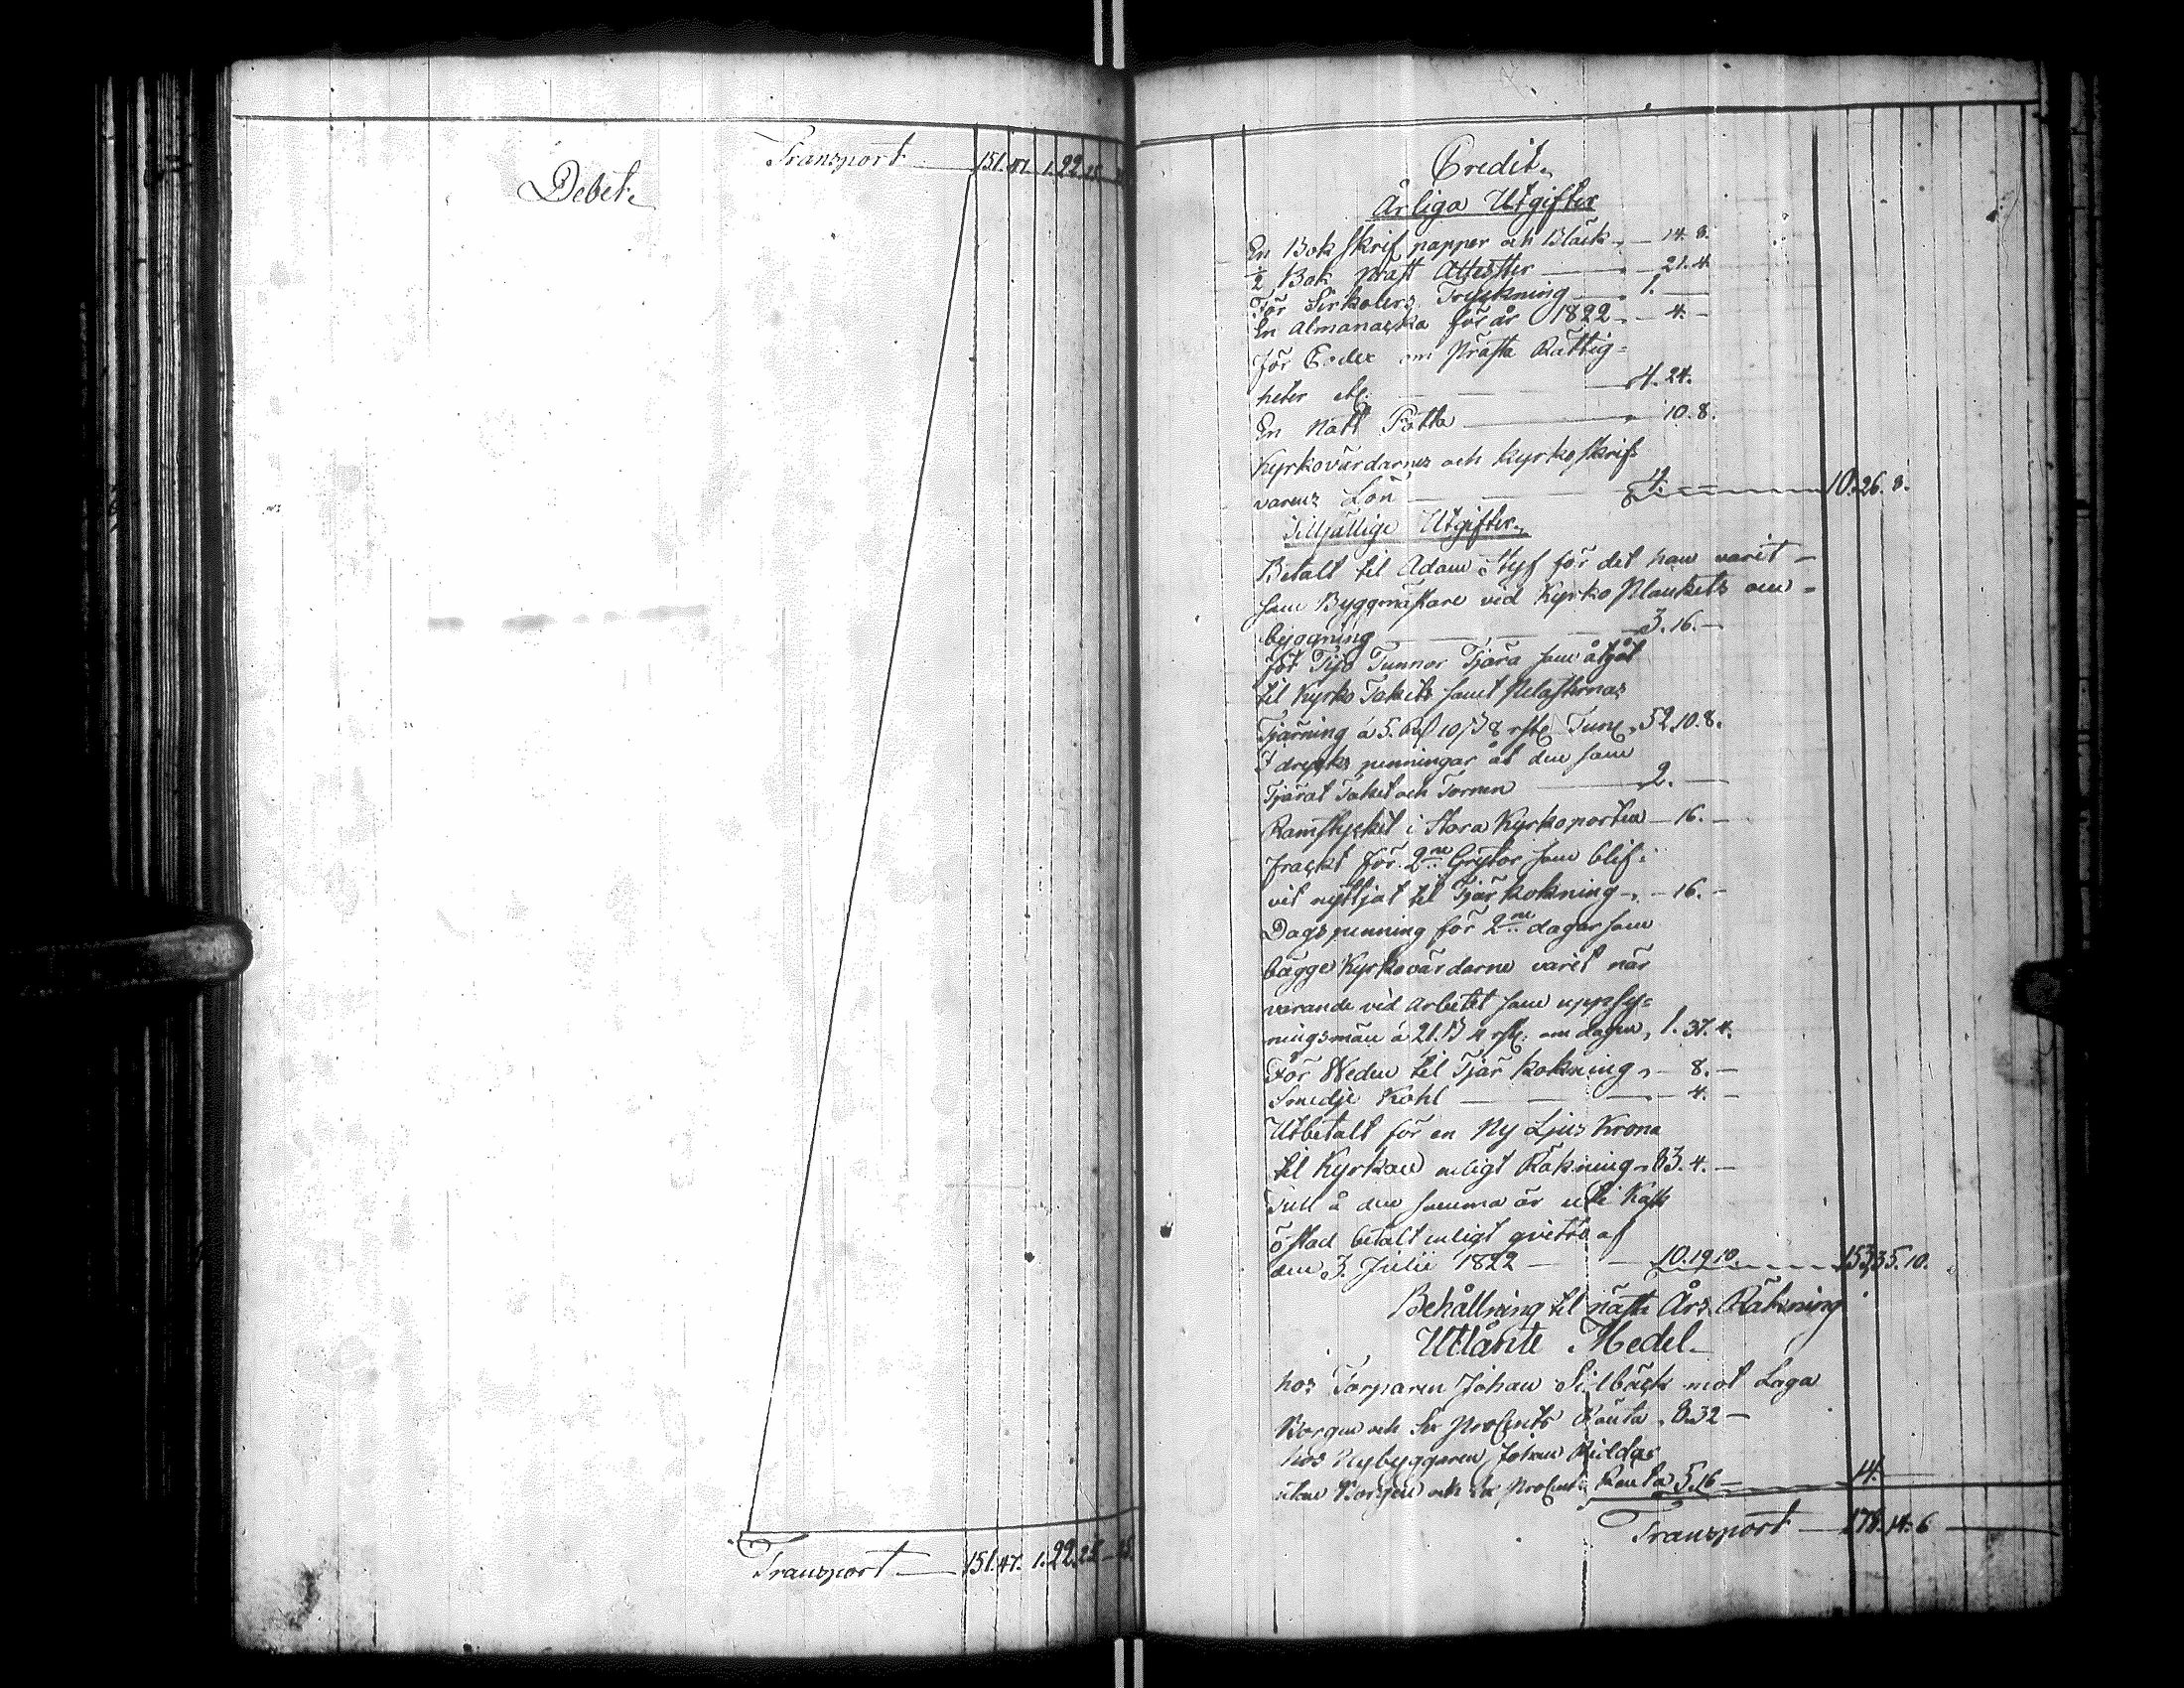 Transport — 151. 47. 1. 22. 25
Debet.
Transport — 151. 47. 1. 22. 25
Credit.
Årliga Utgifter
En Bok Skrif papper och Bläck „ — 14. 8.
½ Bok Präst Attester — „ — 21. 4
För Sirkulers Tryckning — „ 1. —
En Almanacka för år 1822 „ — 4. —
för Codex om Prästa Rättig=
heter etc. — — „ 4. 24.
En Natt Potta — „ 10. 8.
Kyrkovärdarnes och Kyrkoskrif=
varens Lön — — — 4. — 10. 26. 8.
Tillfällige Utgifter.
Betalt til Adam Styf för det han varit
som Byggmästare vid Kyrko Plankets om=
byggning — — — 3. 16. —
för Tijo Tunnor Tjära som åtgåt
til Kyrko Takets samt
Tjärning á 5. Rd 10 ß 8 rst. Tun. „ 52. 10. 8.
I drycks penningar åt dem som
Tjärat Taket och Tornen — 2. —
Ramstycket i Stora Kyrkoporten — 16. —
Frackt för 2ne Grytor som blif=
vit nyttjat til Tjär kokning „ — 16. —
Dagspenning för 2ne dagar som
bägge Kyrkovärdarne varit när
varande vid Arbetet som uppsy=
ningsmän á 21. ß 4 rst. om dagen, 1. 37. 4.
För Weden til Tjär kokning „ — 8. —
Smedje Kohl — — — 4. —
Utbetalt för en Ny Ljus Krona
til Kyrkan enligt Räkning „ 83. 4. —
Tull å den samma är uti
östad betalt enligt qvitto af
den 3. Julii 1822 — — 10. 19. 10. — 153. 35. 10.
Behållning til näste Års Räkning
Utlånte Medel.
hos Torparen Johan Silbäck mot Laga
Borgen och Sex ProCents Ränta „ 8. 32 —
hos Nybyggaren Johan
utan Borgen och Sex ProCent Ränta 5. 16 — 14. —
Transport — 178. 14. 6